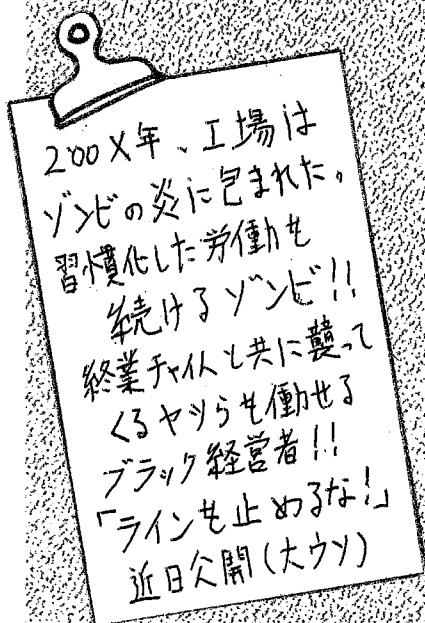 200X年、工場は
ゾンビの炎に包まれた。
習慣化した労働を
続けるゾンビ!!
終業チャイムと共に襲って
くるヤツらを働せる
ブラック経営者!!
「ラインを止めるな!」
近日公開(大ウソ)